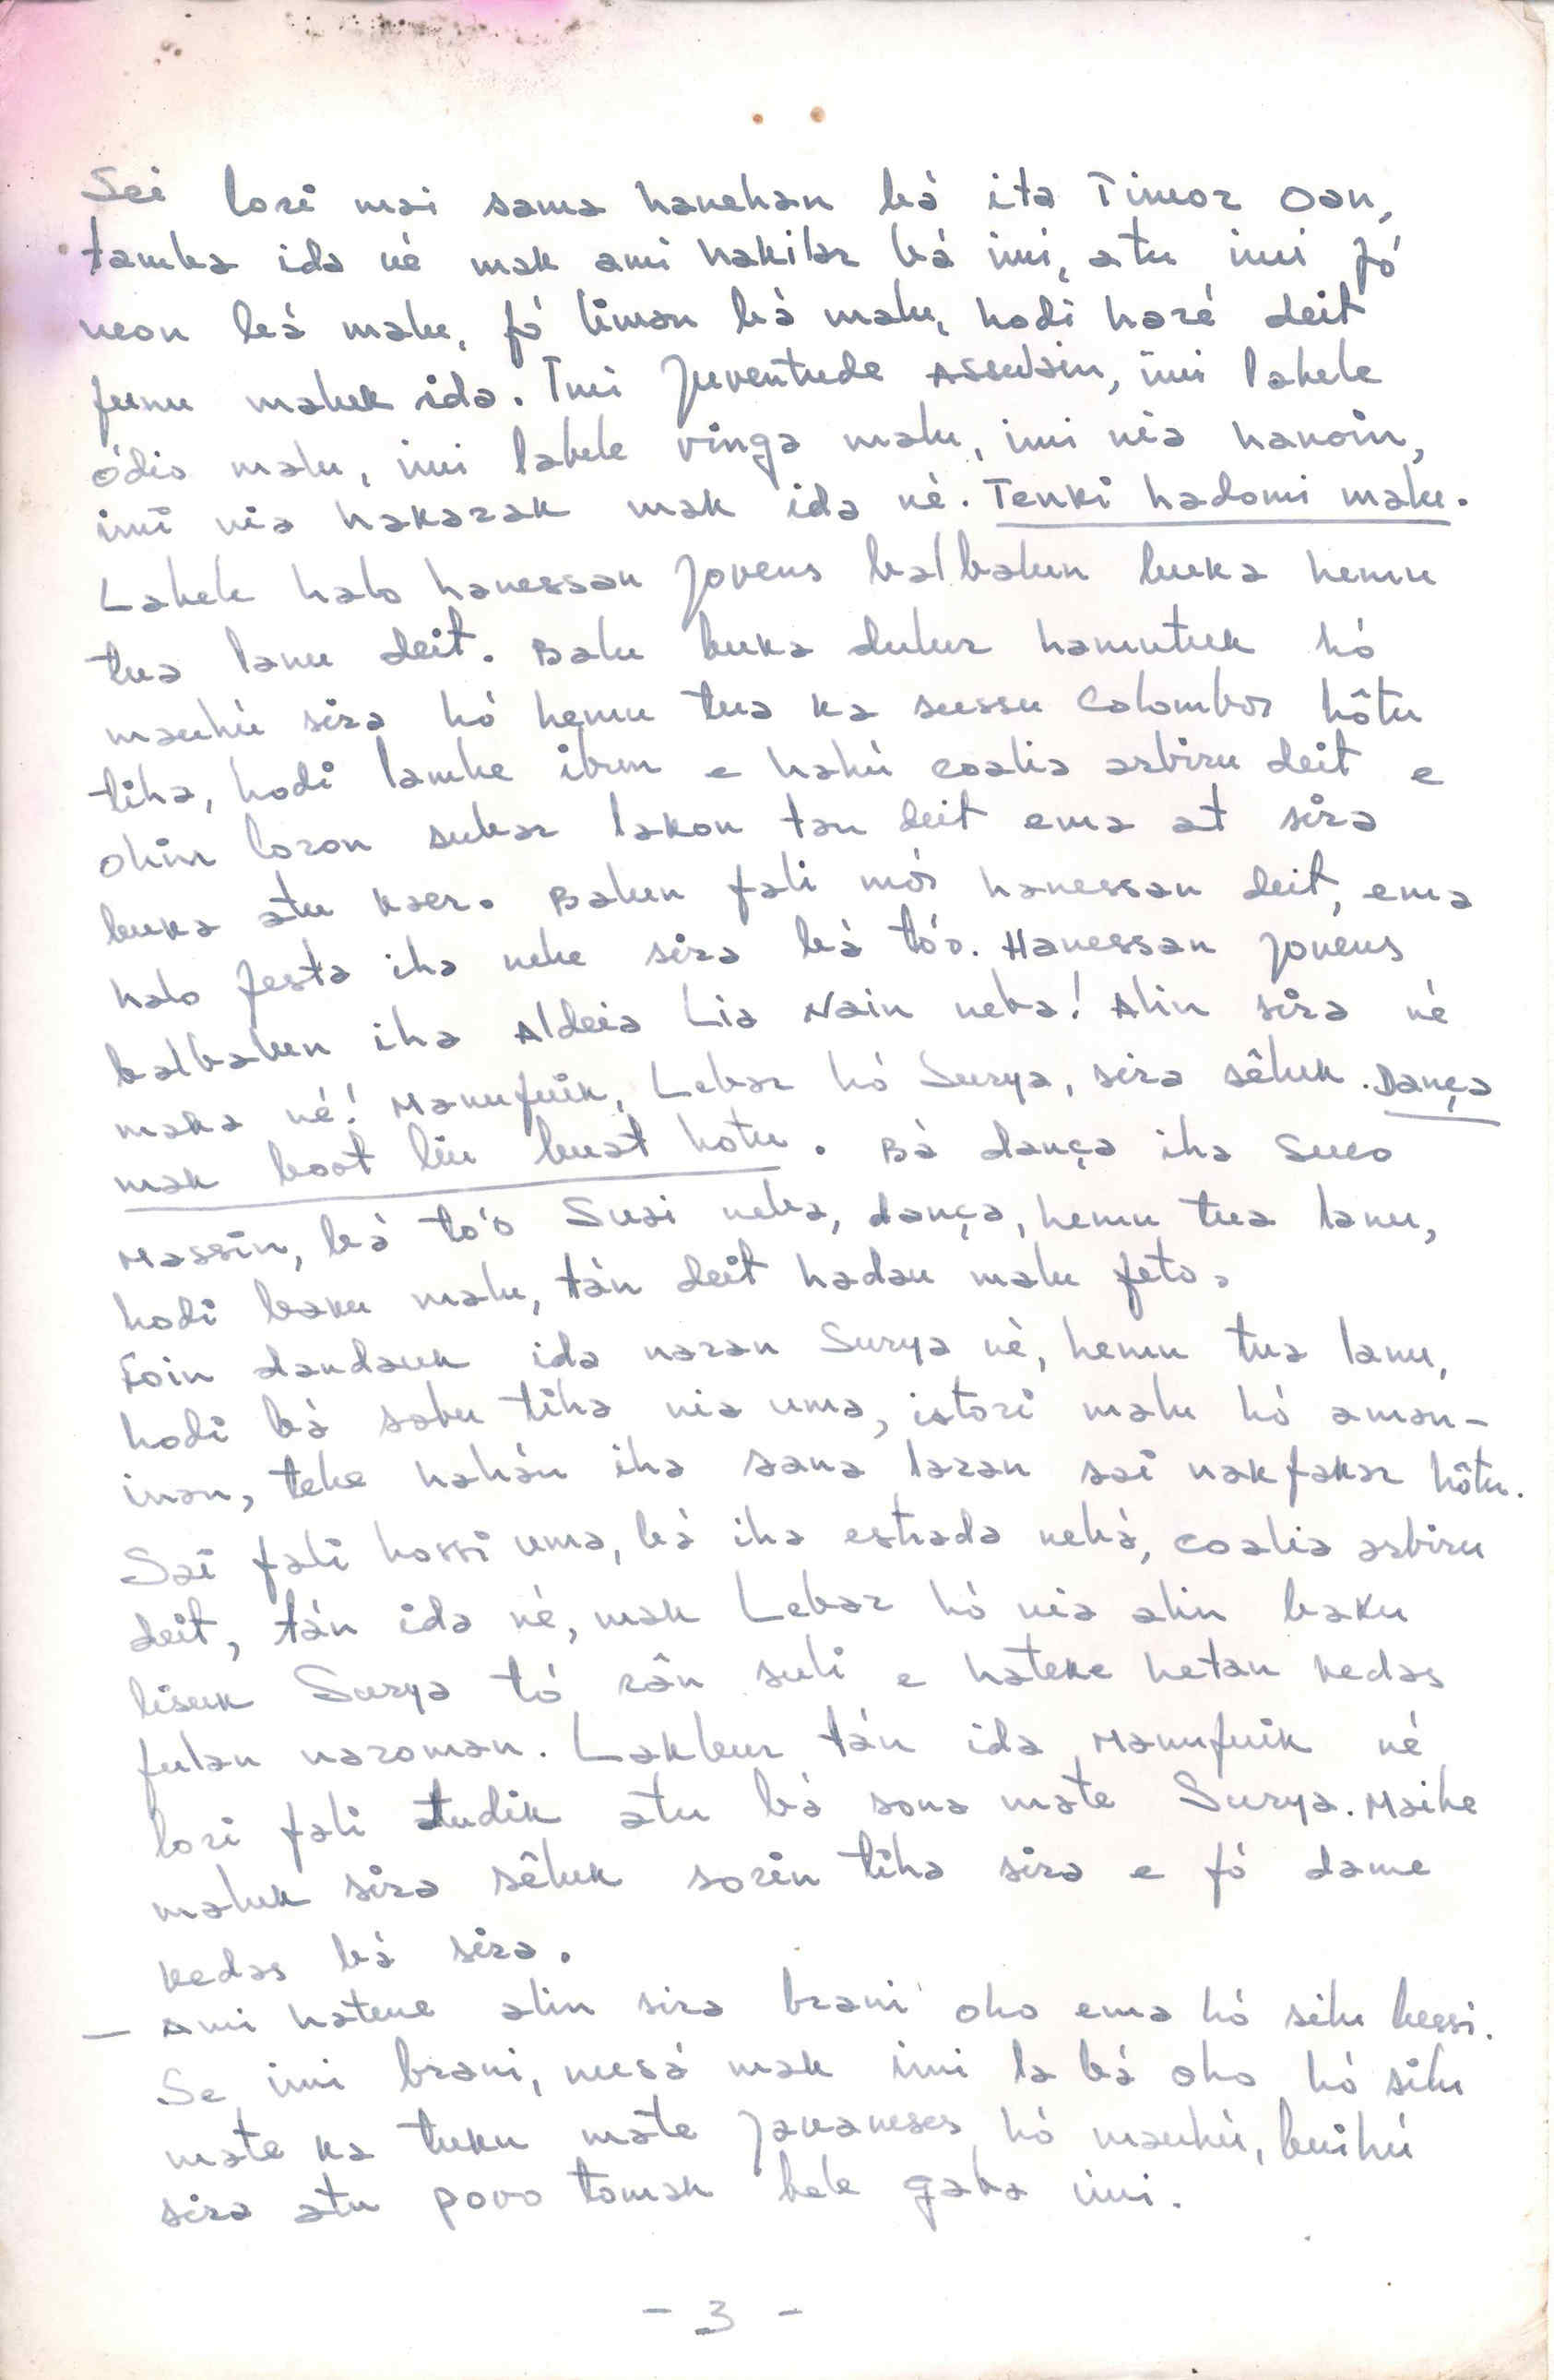 Sei lori mai sama hanehan bá ita Timor Oan,
tamba ida né mak ami hakilar bá imi, atu imi fó
neon bá malu, fó liman bá malu, hodi haré deit
funu maluk ida. Imi juventude Assulain, imi labele
ódio malu, imi labele vinga malu, imi nia hanoin,
imi nia hakarak mak ida né. Tenki hadomi malu.
Labele halo hanessan jovens balbalun buka hemu
tua lanu deit. Balu buka dulur hamutuk hó
mauhú sira hó hemu tua ka sussu Colombor hôtu
tiha, hodi lamhe ibun e hahú coalia arbiru deit e
ohin loron subar lakon tan deit ema at sira
buka atu kaer. Balun fali mós hanessan deit, ema
halo festa iha nebe sira bá tó'o. Hanessan jovens
balbalun iha Aldeia Lia Nain neba! Alin sira né
maka né! Manufuik, Lebar hó Surya, sira sêluk. Dança
mak boot liu buat hotu. Bá dança iha Suco
Massin, bá tó'o Suai neba, dança, hemu tua lanu,
hodi baku malu, tán deit hadau malu feto.
Foin dandauk ida naran Surya né, hemu tua lanu,
hodi bá sabu tiha nia uma, istori malu hó aman-
inan, tebe hahán iha sana laran sai nakfakar hôtu.
Sai fali hossi uma, bá iha estrada nebá, coalia arbiru
deit, tán ida né, mak Lebar hó nia alin baku
lisuk Surya tó rân suli e hateke hetan kedas
fulan naroman. Lakleur tán ida Manufuik né
lori fali tudik atu bá sona mate Surya. Maibe
maluk sira sêluk sorin tiha sira e fó dame
kedas bá sira.
— Ami hatene alin sira brani oho ema hó silu bessi.
Se imi brani, nusá mak imi la bá oho hó silu
mate ka tuku mate javaneses hó mauhú, buihú
sira atu povo tomak bele gaba imi.
- 3 -